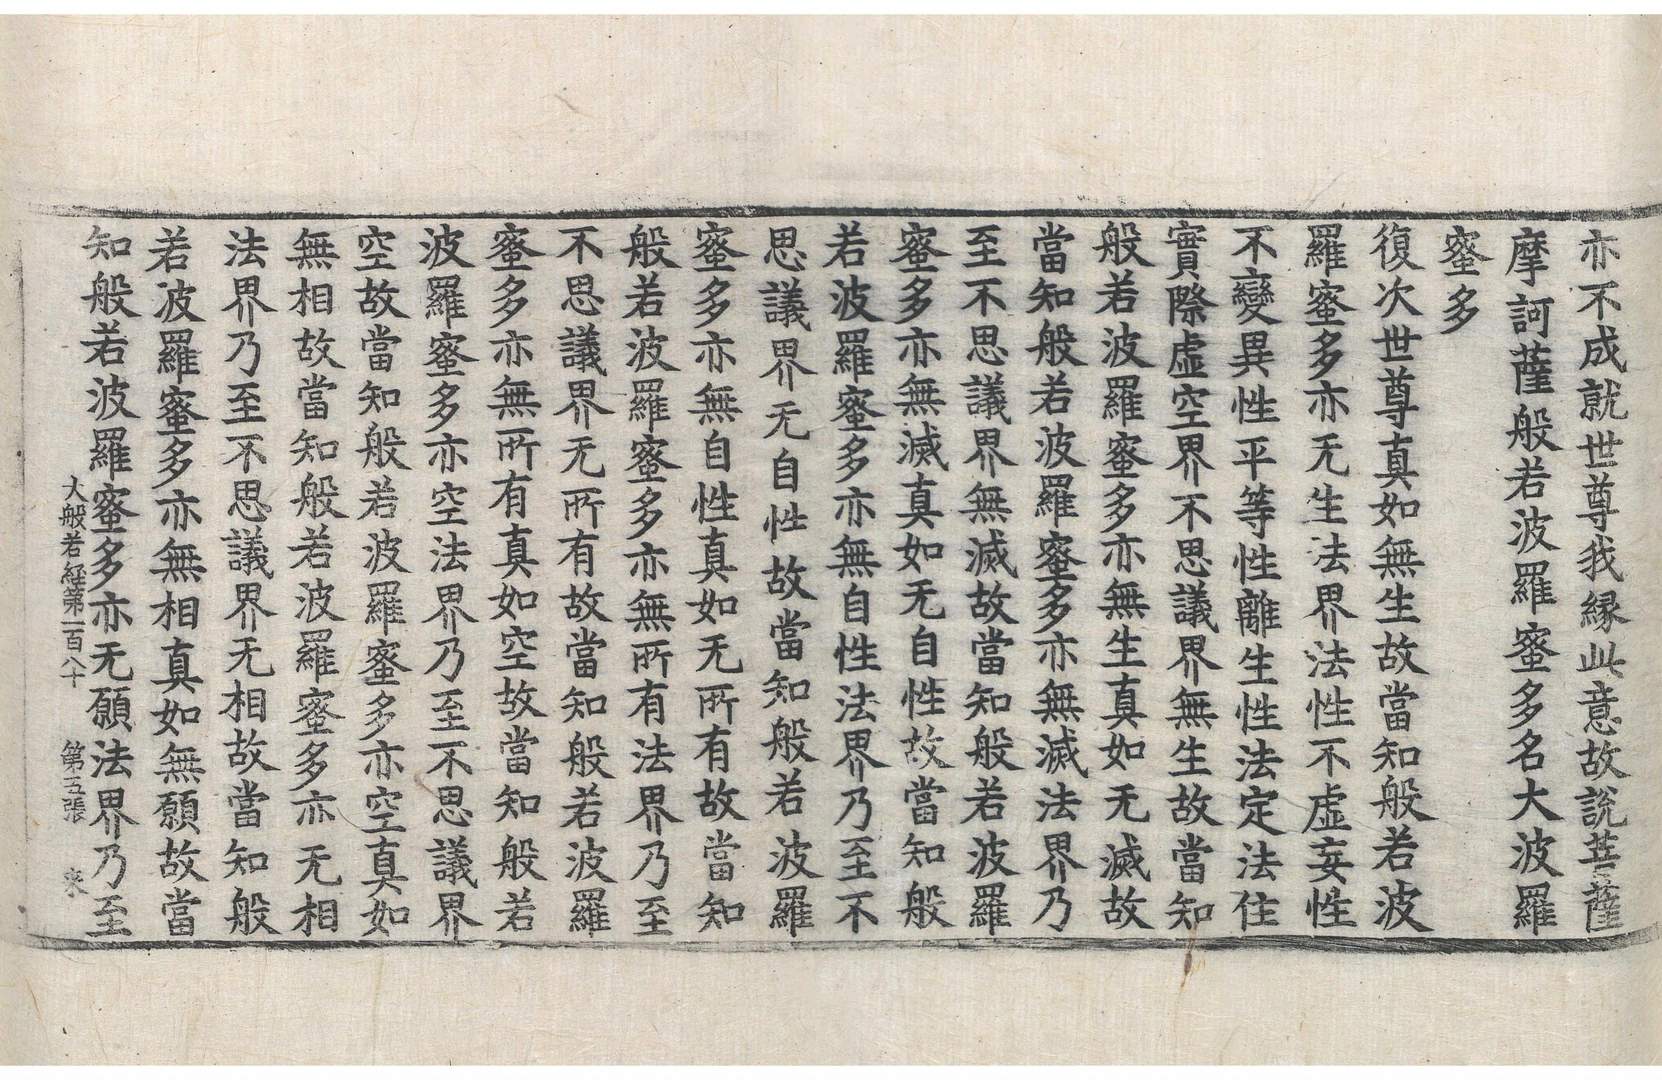 亦不成就世尊我縁此意故說菩薩
摩訶薩般若波羅蜜多名大波羅
蜜多
復次世尊真如無生故當知般若波
羅蜜多亦无生法界法性不虛妄性
不變異性平等性離生性法定法住
實際虛空界不思議界無生故當知
般若波羅蜜多亦無生真如无滅故
當知般若波羅蜜多亦無滅法界乃
至不思議界無滅故當知般若波羅
蜜多亦無滅真如无自性故當知般
若波羅蜜多亦無自性法界乃至不
思議界无自性故當知般若波羅
蜜多亦無自性真如无所有故當知
般若波羅蜜多亦無所有法界乃至
不思議界无所有故當知般若波羅
蜜多亦無所有真如空故當知般若
波羅蜜多亦空法界乃至不思議界
空故當知般若波羅蜜多亦空真如
無相故當知般若波羅蜜多亦无相
法界乃至不思議界无相故當知般
若波羅蜜多亦無相真如無願故當
知般若波羅蜜多亦无願法界乃至
大般若経第一百八十 第五張 來